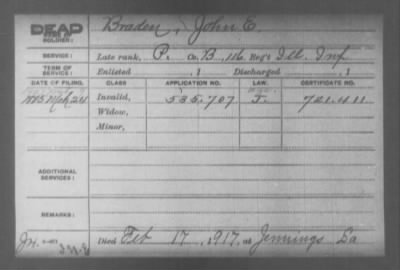 DEAD
NAME OF SOLDIER: Braden, John E
SERVICE: Late rank, P. Co. B, 116 Reg't Ill. Inf
TERM OF SERVICE: Enlisted , 1 Discharged , 1
DATE OF FILING. CLASS APPLICATION NO. LAW. CERTIFICATE NO.
1885 Mch 24 Invalid, 535.707 J. 721.411
Widow,
Minor,
ADDITIONAL SERVICES:
REMARKS:
Died Feb 17, 1917, at Jennings La